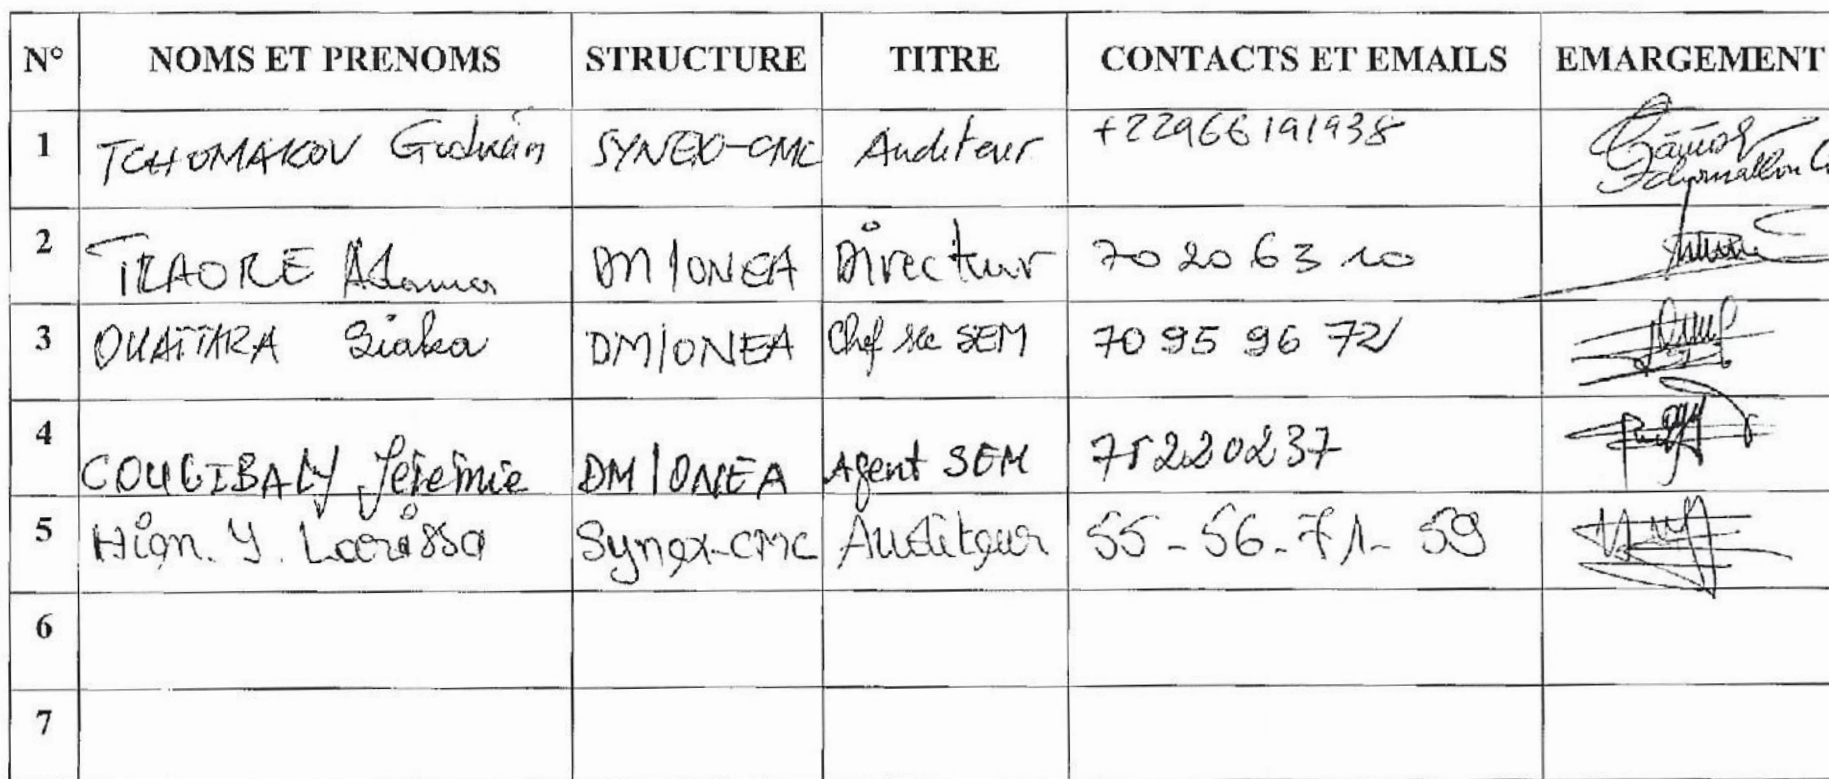 N° NOMS ET PRENOMS STRUCTURE TITRE CONTACTS ET EMAILS EMARGEMENT
1 TCHOMAKOV SYNEX-CMC Auditeur +22966191938
2 TRAORE Adama DM/ONEA Directeur 70 20 63 10
3 OUATTARA Siaka DM/ONEA Chef SEM 70 95 96 72
4 COULIBALY Jérémie DM/ONEA Agent SEM 75220237
5 Hien. Y. Larissa Synex-CMC Auditeur 55-56-71-59
6
7